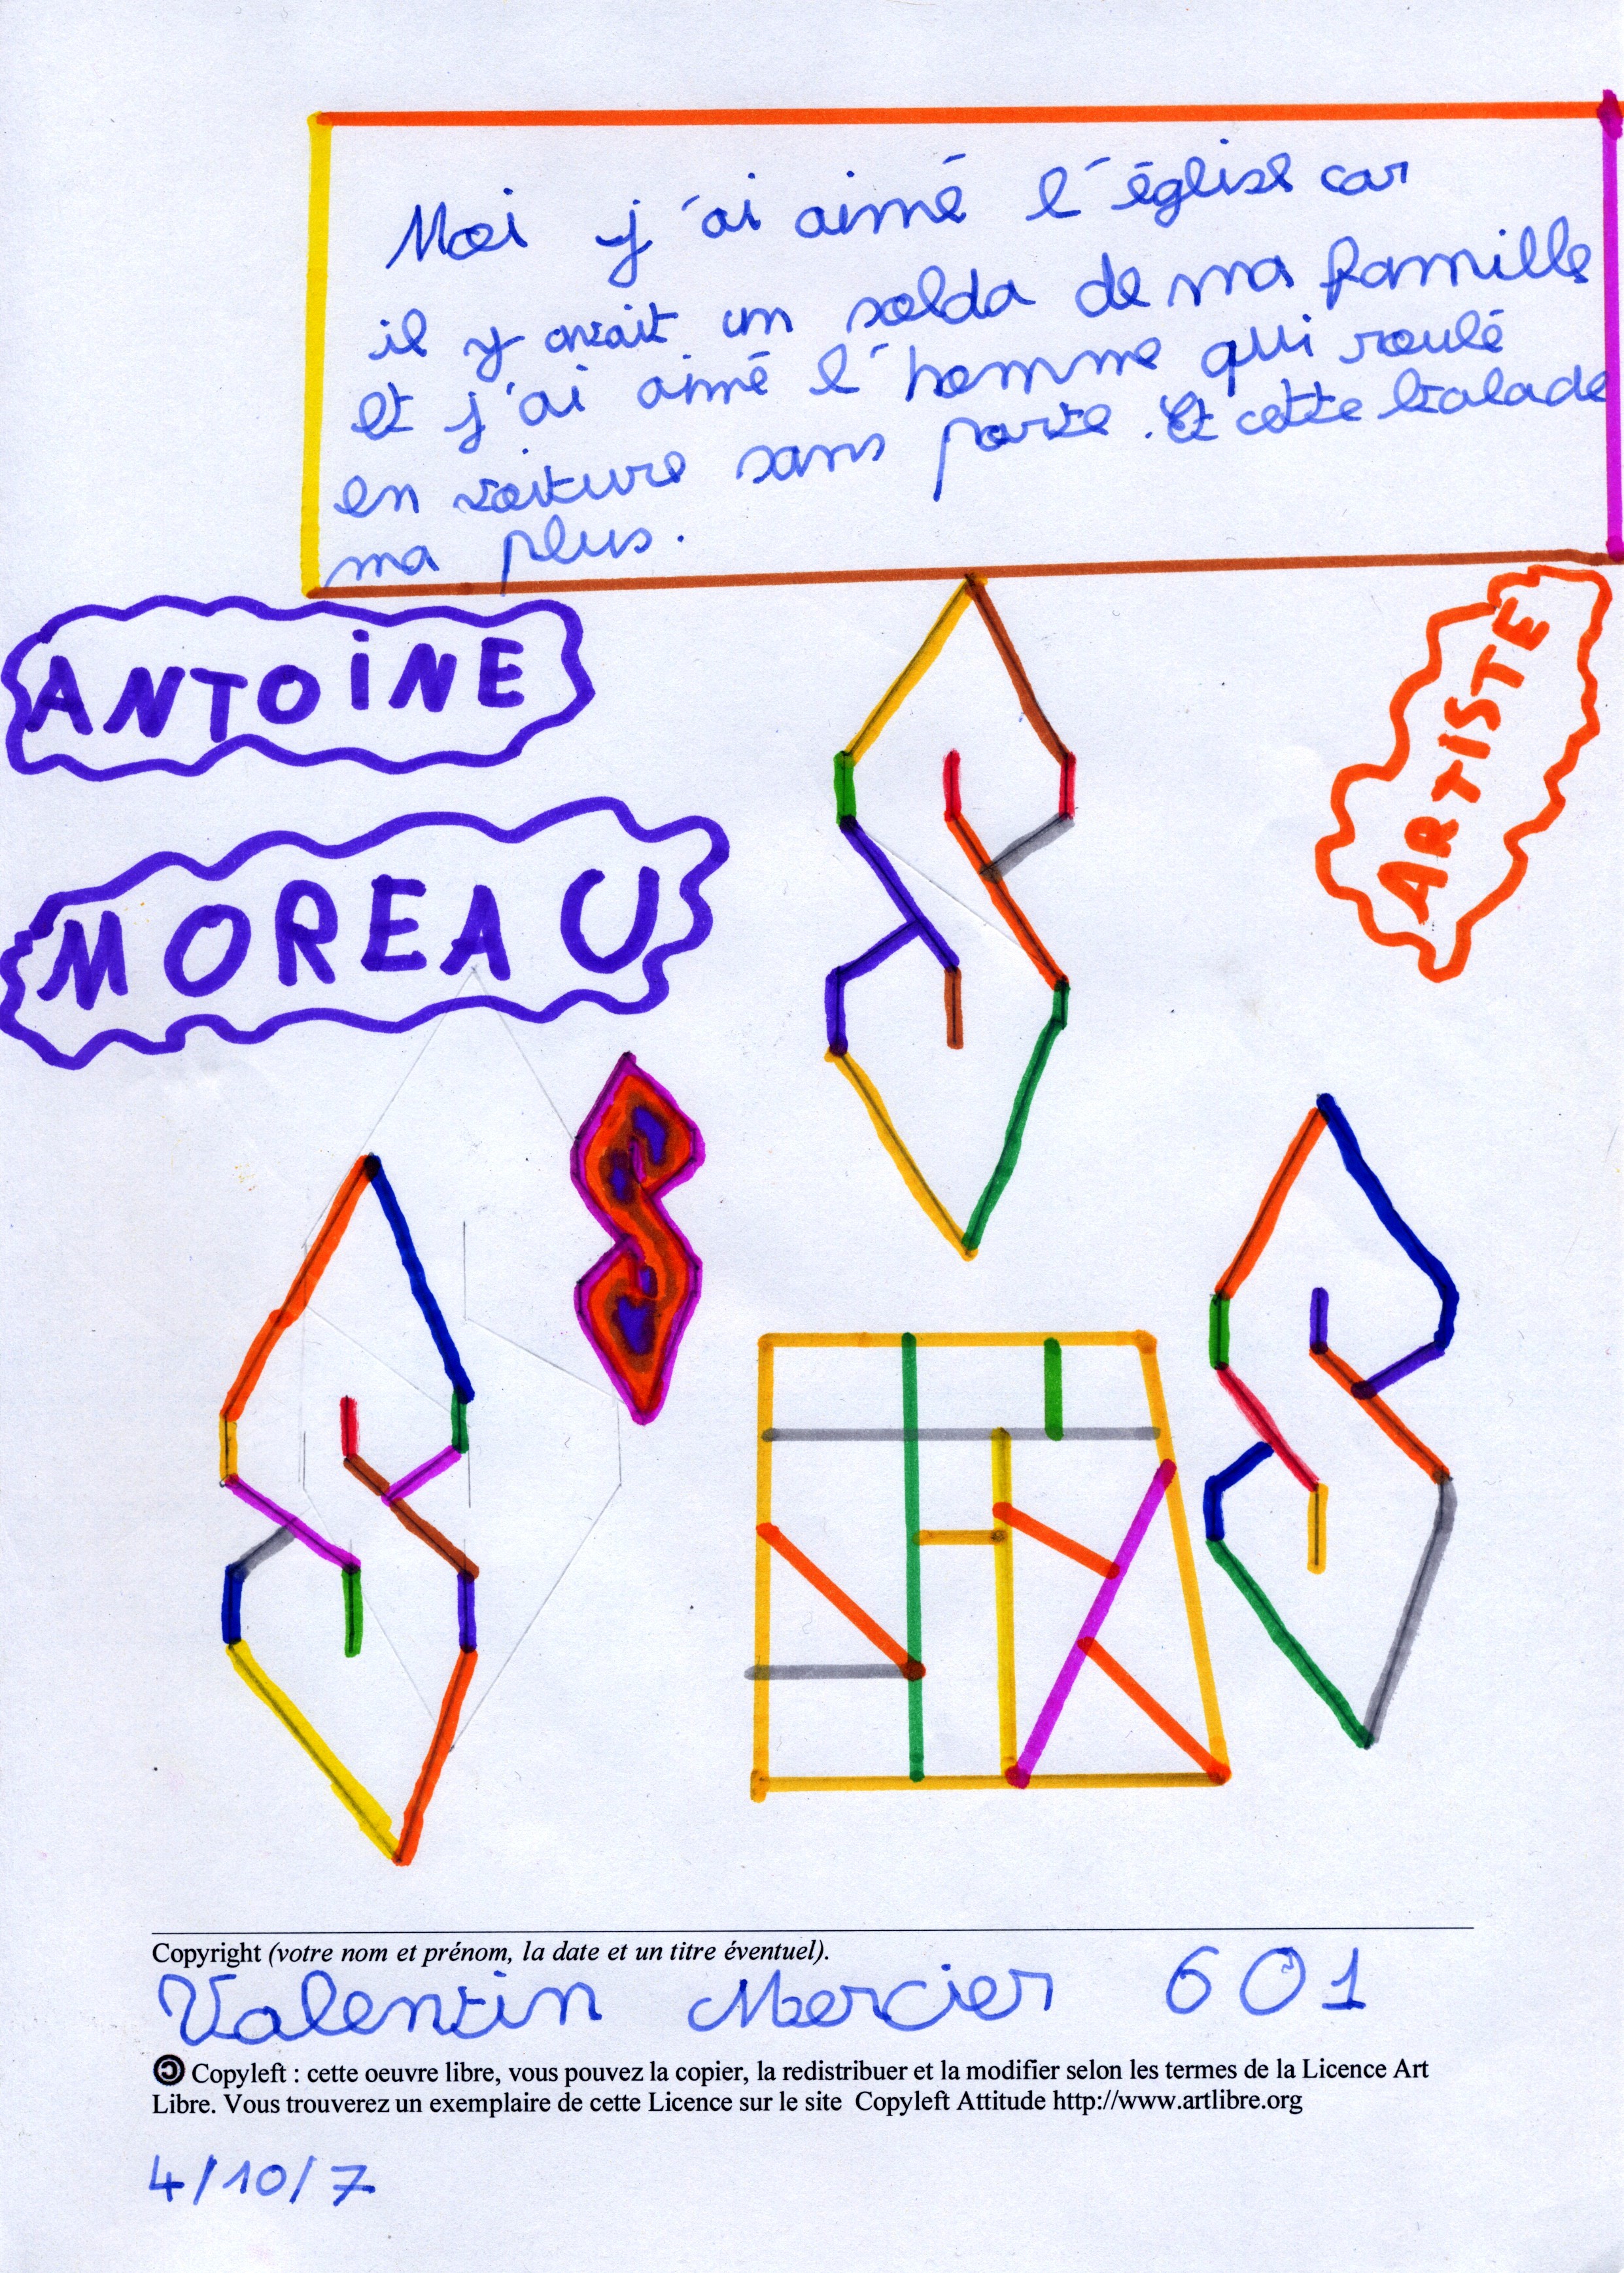 Moi j'ai aimé l'église car
il y avait un solda de ma famille
et j'ai aimé l'homme qui roulé
en voiture sans porte. Et cette balade
ma plus.
ANTOINE
ARTISTE
MOREAU
Copyright (votre nom et prénom, la date et un titre éventuel).
Valentin Mercier 601
Copyleft : cette oeuvre libre, vous pouvez la copier, la redistribuer et la modifier selon les termes de la Licence Art
Libre. Vous trouverez un exemplaire de cette Licence sur le site Copyleft Attitude http://www.artlibre.org
4/10/7